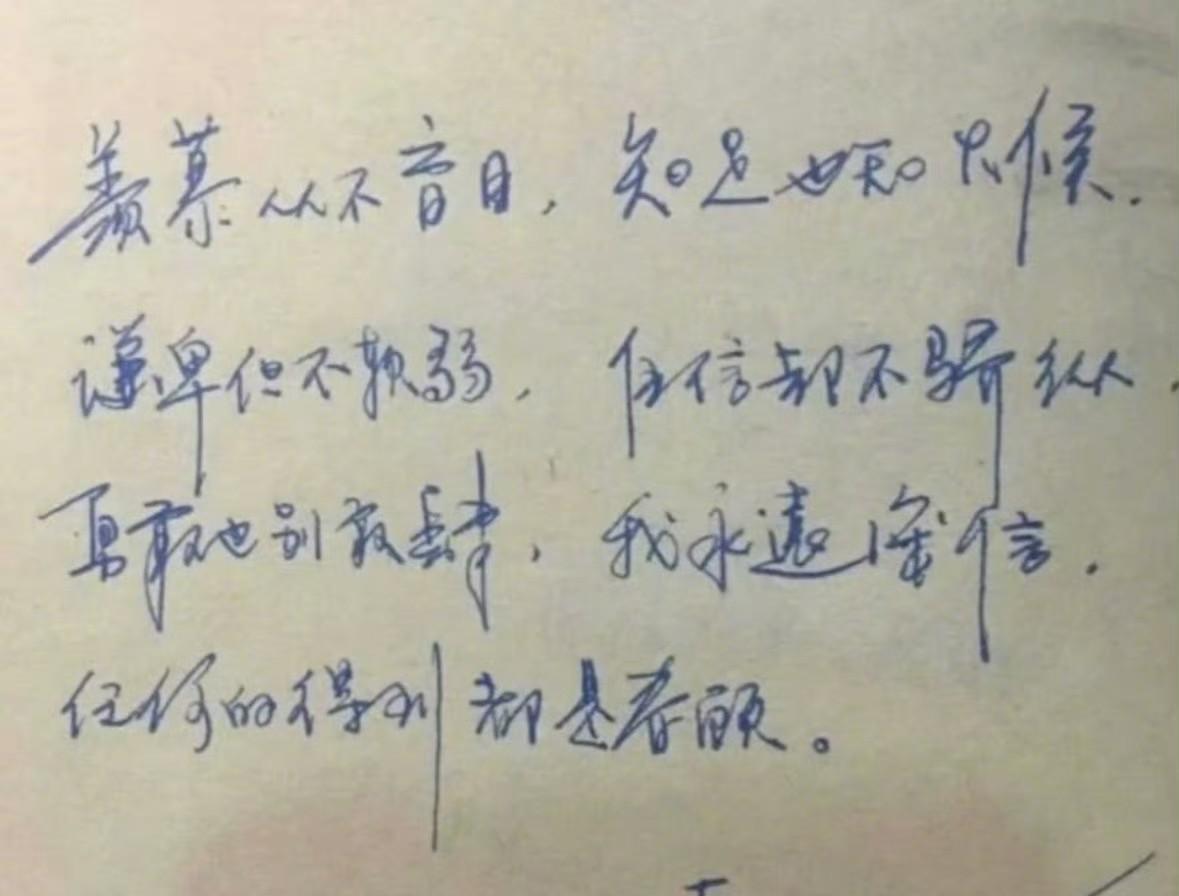 羡慕从不盲目,知足也知火候.
谦卑但不软弱,自信却不骄纵,
勇敢也别放肆,我永远深信.
任何的得到都是眷顾。